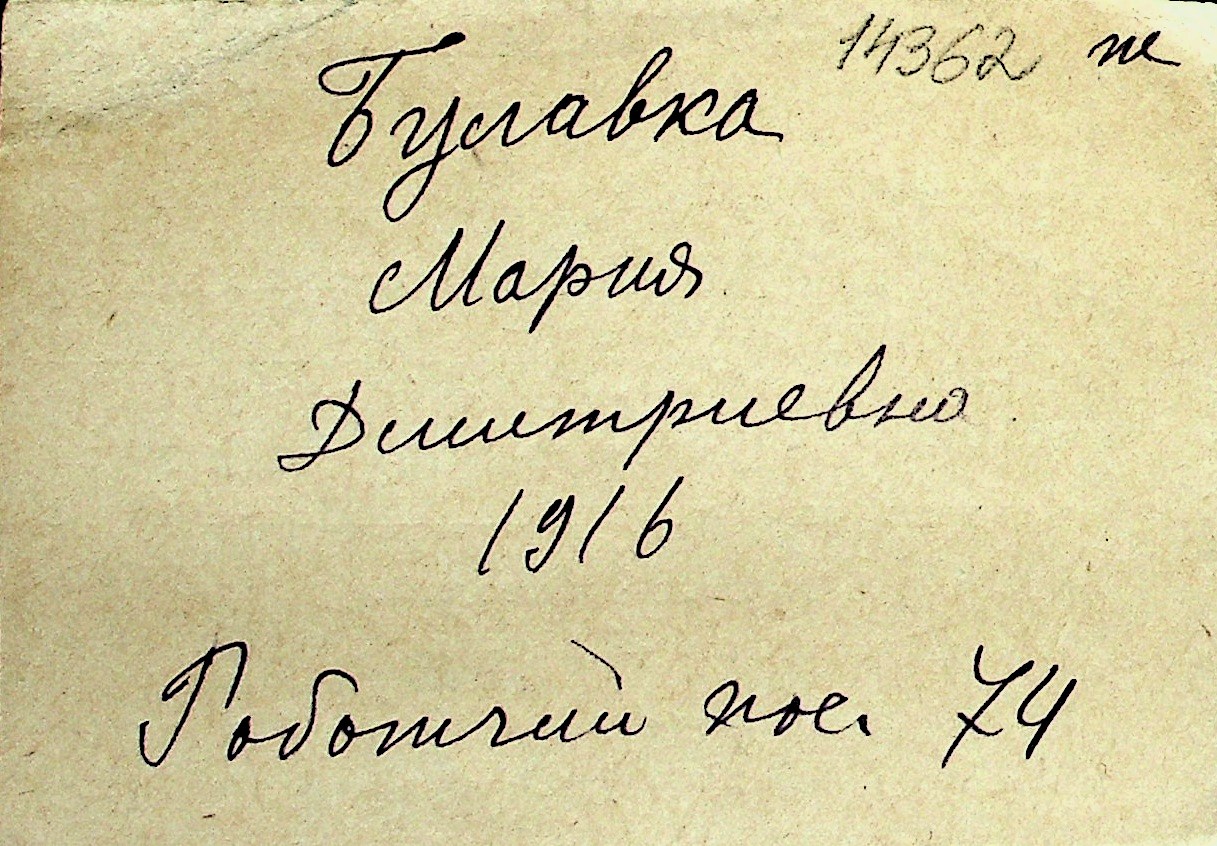 14362 пе
Булавка
Мария
Дмитриевна
1916
Работчий пос. 74